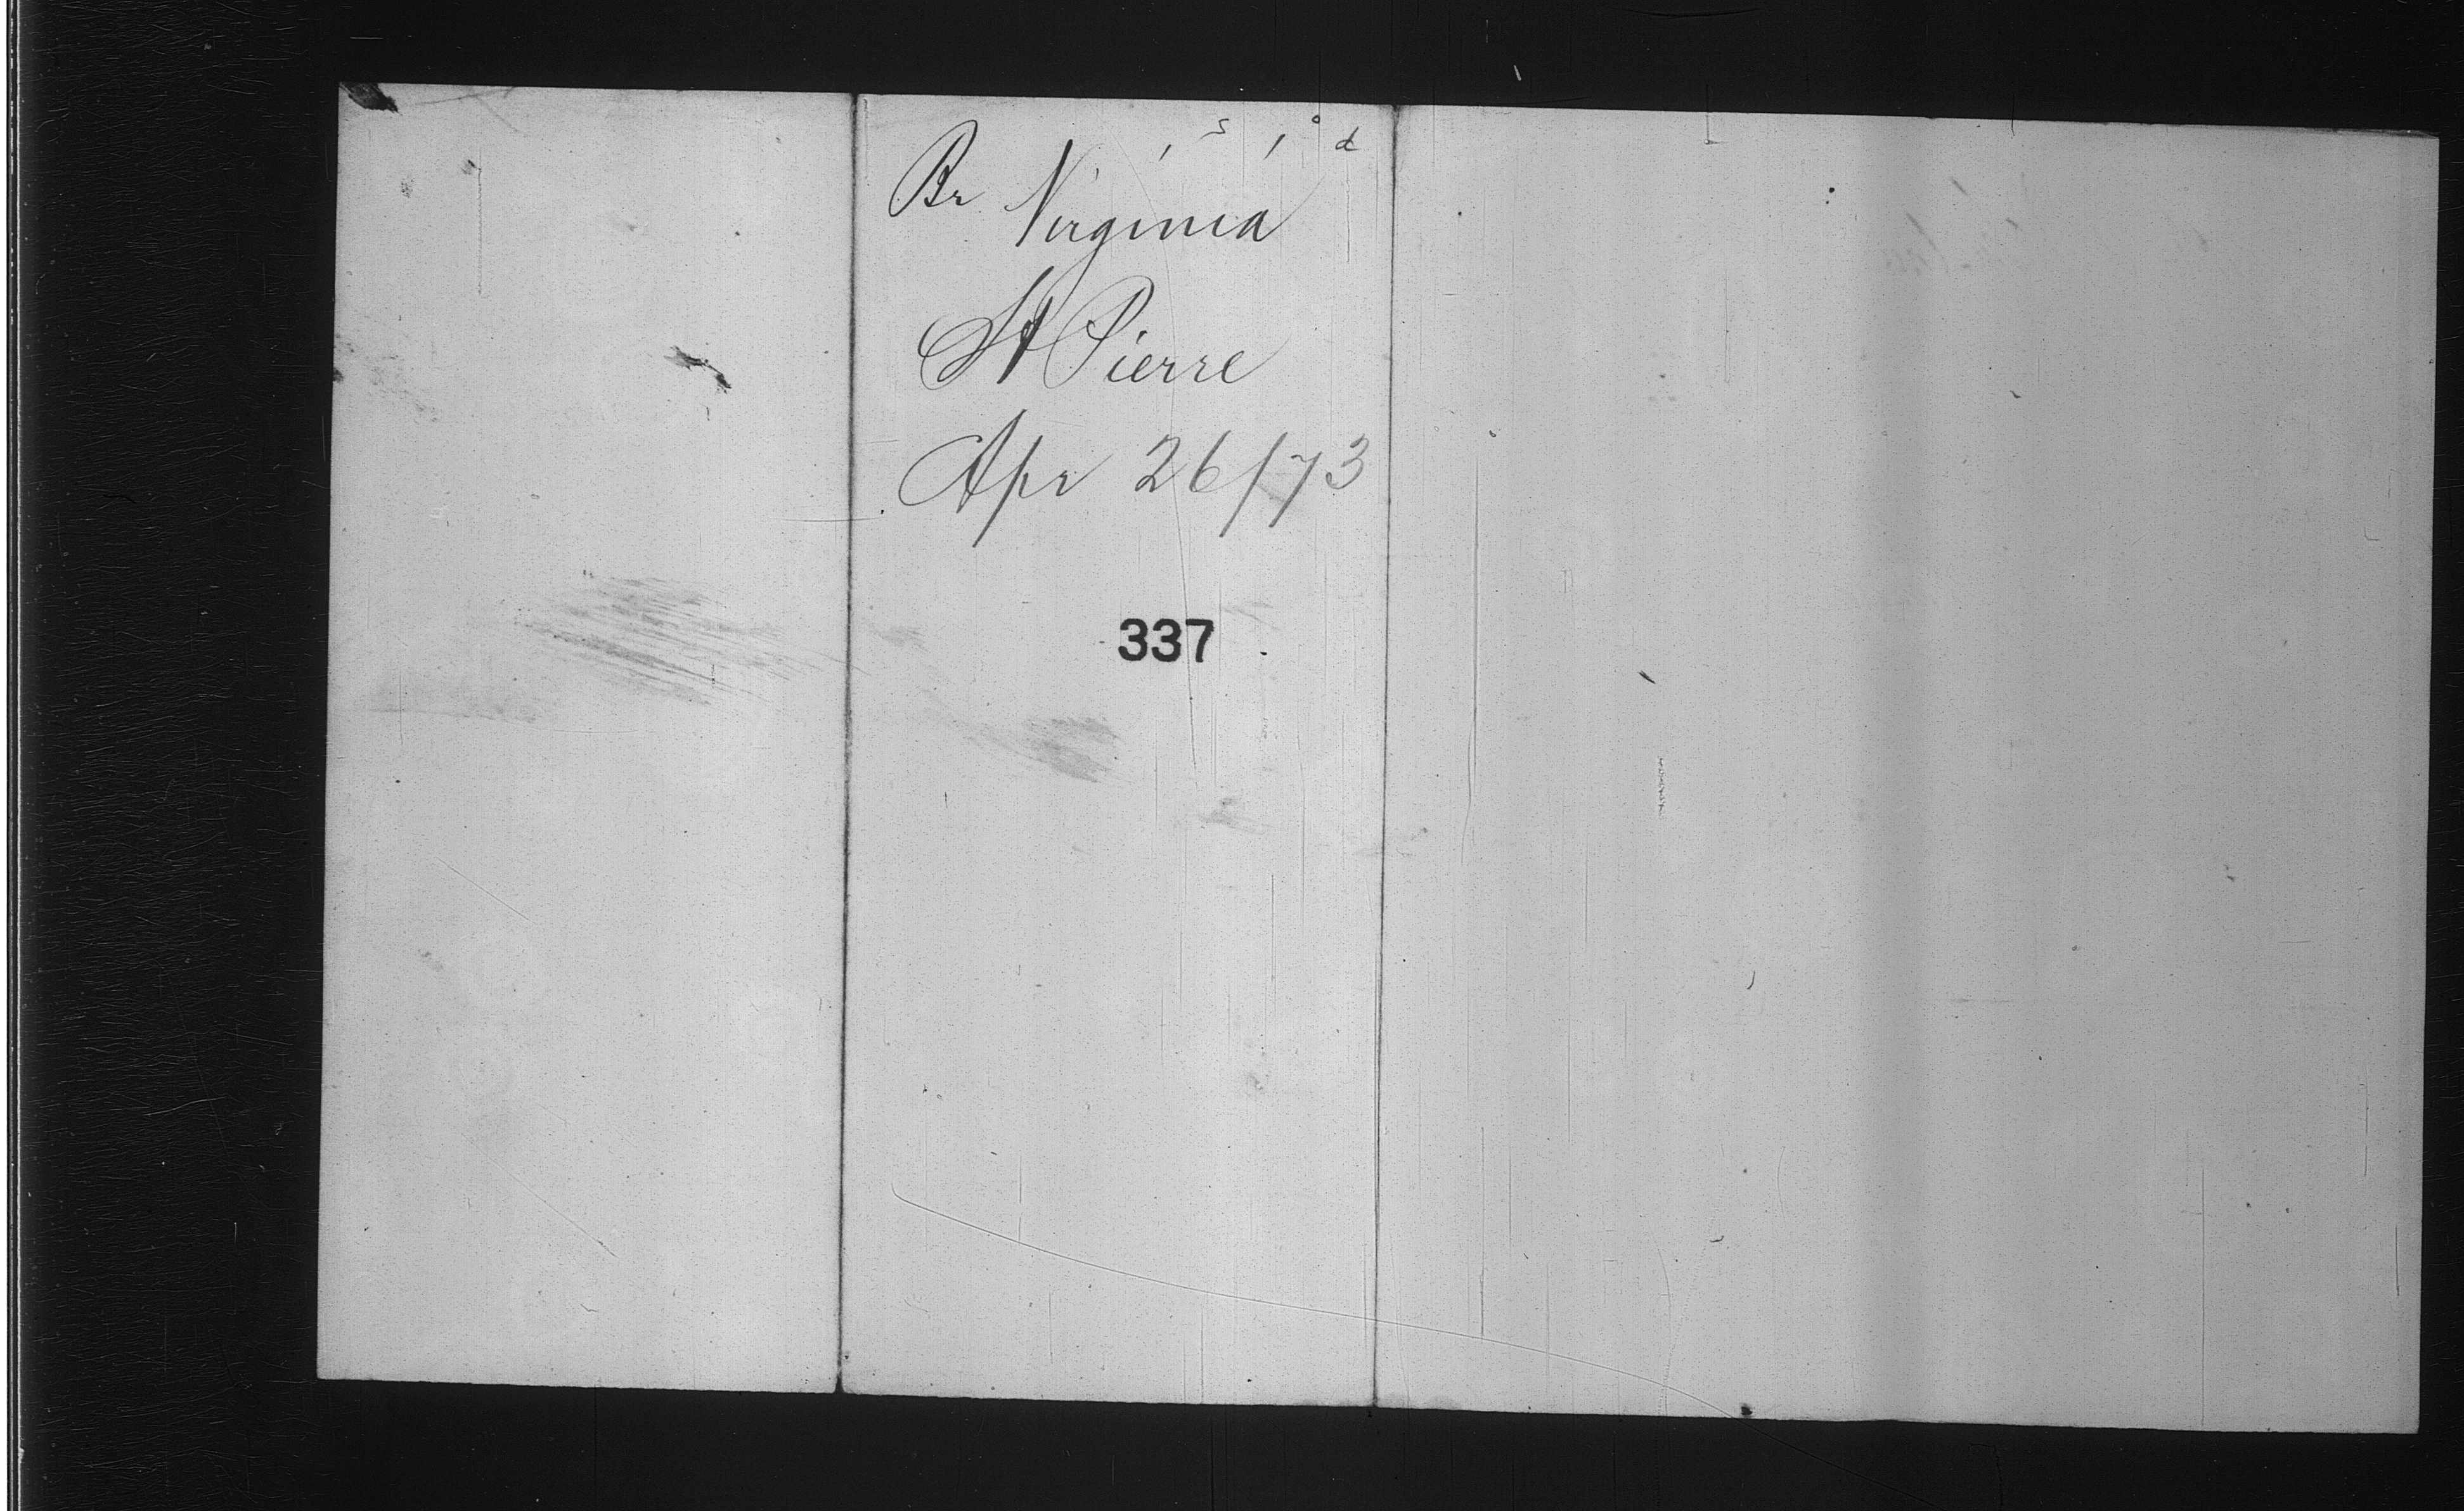 Br Virginia
St Pierre
Apr 26/73
337